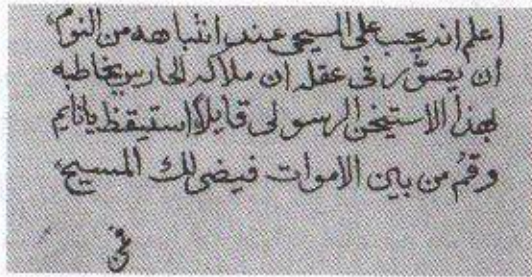 اعلم انه يجب على المسيحى عند انتباهه من النوم،
ان يصوّر فى عقله ان ملاكه الحارس يخاطبه
بهذا الاستيخن الرسولى قايلاً استيقظ يا نايم
وقُم من بين الاموات فيضى لك المسيح،
فى